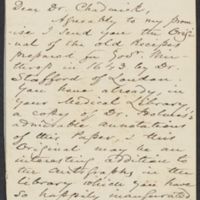 Dear Dr. Chadwick,
Agreeably to my prom-
ise I send you the Origi-
nal of the old Recipes
prepared for Govr. Win-
throp in 1643 by Dr.
Stafford of London.
You have already, in
your Medical Library,
a copy of Dr. Holmes's
admirable annotations
of this Paper, & this
Original may be an
interesting addition to
the autographs in the
Library which you have
so happily inaugurated